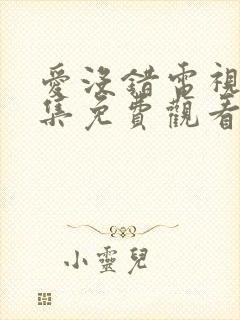 愛沒錯電視
集免費觀看
小靈兒